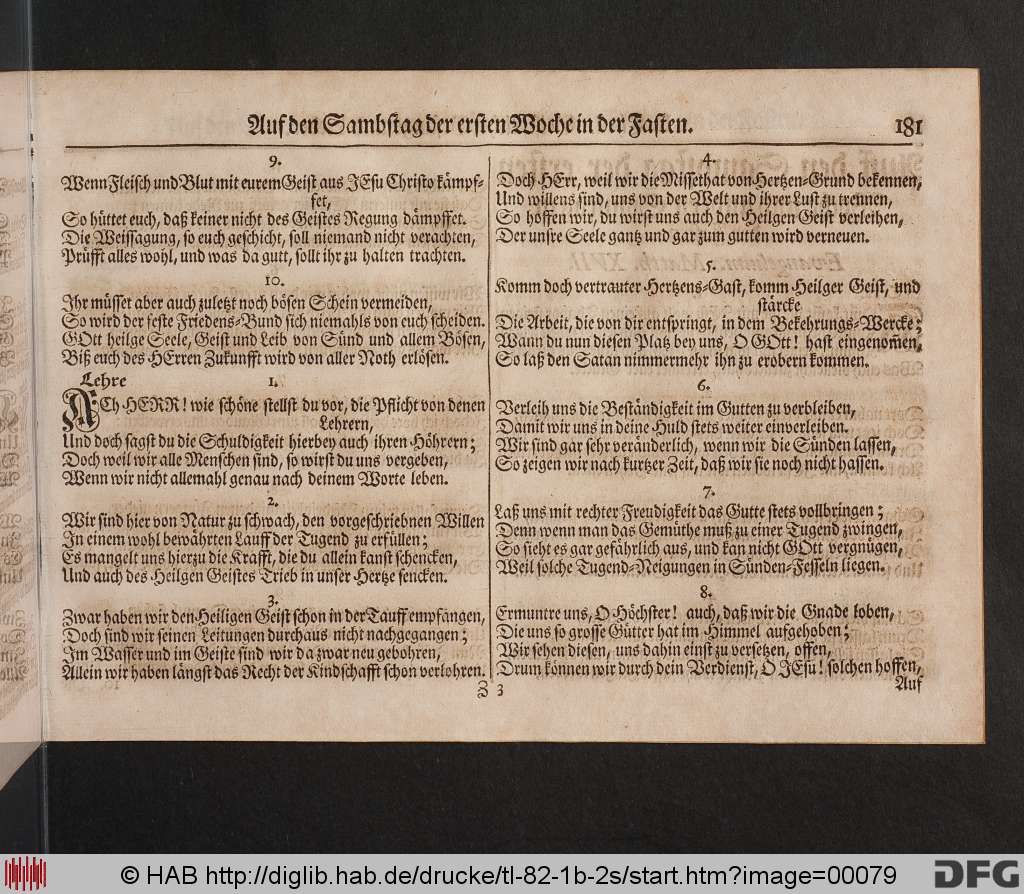 Auf den Sambstag der ersten Woche in der Fasten.
181
9.
Wenn Fleisch und Blut mit eurem Geist aus JEsu Christo kämpf-
fet,
So hüttet euch, daß keiner nicht des Geistes Regung dämpffet.
Die Weissagung, so euch geschicht, soll niemand nicht verachten,
Prüfft alles wohl, und was da gutt, sollt ihr zu halten trachten.
10.
Ihr müsset aber auch zuletzt noch bösen Schein vermeiden,
So wird der feste Friedens-Bund sich niemahls von euch scheiden.
GOtt heilge Seele, Geist und Leib von Sünd und allem Bösen,
Biß euch des HErren Zukunfft wird von aller Noth erlösen.
Lehre
1.
ACh HERR! wie schöne stellst du vor, die Pflicht von denen
Lehrern,
Und doch sagst du die Schuldigkeit hierbey auch ihren Höhrern;
Doch weil wir alle Menschen sind, so wirst du uns vergeben,
Wenn wir nicht allemahl genau nach deinem Worte leben.
2.
Wir sind hier von Natur zu schwach, den vorgeschriebnen Willen
In einem wohl bewährten Lauff der Tugend zu erfüllen;
Es mangelt uns hierzu die Krafft, die du allein kanst schencken,
Und auch des Heilgen Geistes Trieb in unser Hertze sencken.
3.
Zwar haben wir den Heiligen Geist schon in der Tauff empfangen,
Doch sind wir seinen Leitungen durchaus nicht nachgegangen;
Im Wasser und im Geiste sind wir da zwar neu gebohren,
Allein wir haben längst das Recht der Kindschafft schon verlohren.
Z 3
4.
Doch HErr, weil wir die Missethat von Hertzen-Grund bekennen,
Und willens sind, uns von der Welt und ihrer Lust zu trennen,
So hoffen wir, du wirst uns auch den Heilgen Geist verleihen,
Der unsre Seele gantz und gar zum gutten wird verneuen.
5.
Komm doch vertrauter Hertzens-Gast, komm Heilger Geist, und
stärcke
Die Arbeit, die von dir entspringt, in dem Bekehrungs-Wercke;
Wann du nun diesen Platz bey uns, O GOtt! hast eingenom̃en,
So laß den Satan nimmermehr ihn zu erobern kommen.
6.
Verleih uns die Beständigkeit im Gutten zu verbleiben,
Damit wir uns in deine Huld stets weiter einverleiben.
Wir sind gar sehr veränderlich, wenn wir die Sünden lassen,
So zeigen wir nach kurtzer Zeit, daß wir sie noch nicht hassen.
7.
Laß uns mit rechter Freudigkeit das Gutte stets vollbringen;
Denn wenn man das Gemüthe muß zu einer Tugend zwingen,
So sieht es gar gefährlich aus, und kan nicht GOtt vergnügen,
Weil solche Tugend-Neigungen in Sünden-Fesseln liegen.
8.
Ermuntre uns, O Höchster! auch, daß wir die Gnade loben,
Die uns so grosse Gütter hat im Himmel aufgehoben;
Wir sehen diesen, uns dahin einst zu versetzen, offen,
Drum können wir durch dein Verdienst, O JEsu! solchen hoffen,
Auf
© HAB http://diglib.hab.de/drucke/tl-82-1b-2s/start.htm?image=00079
DFG